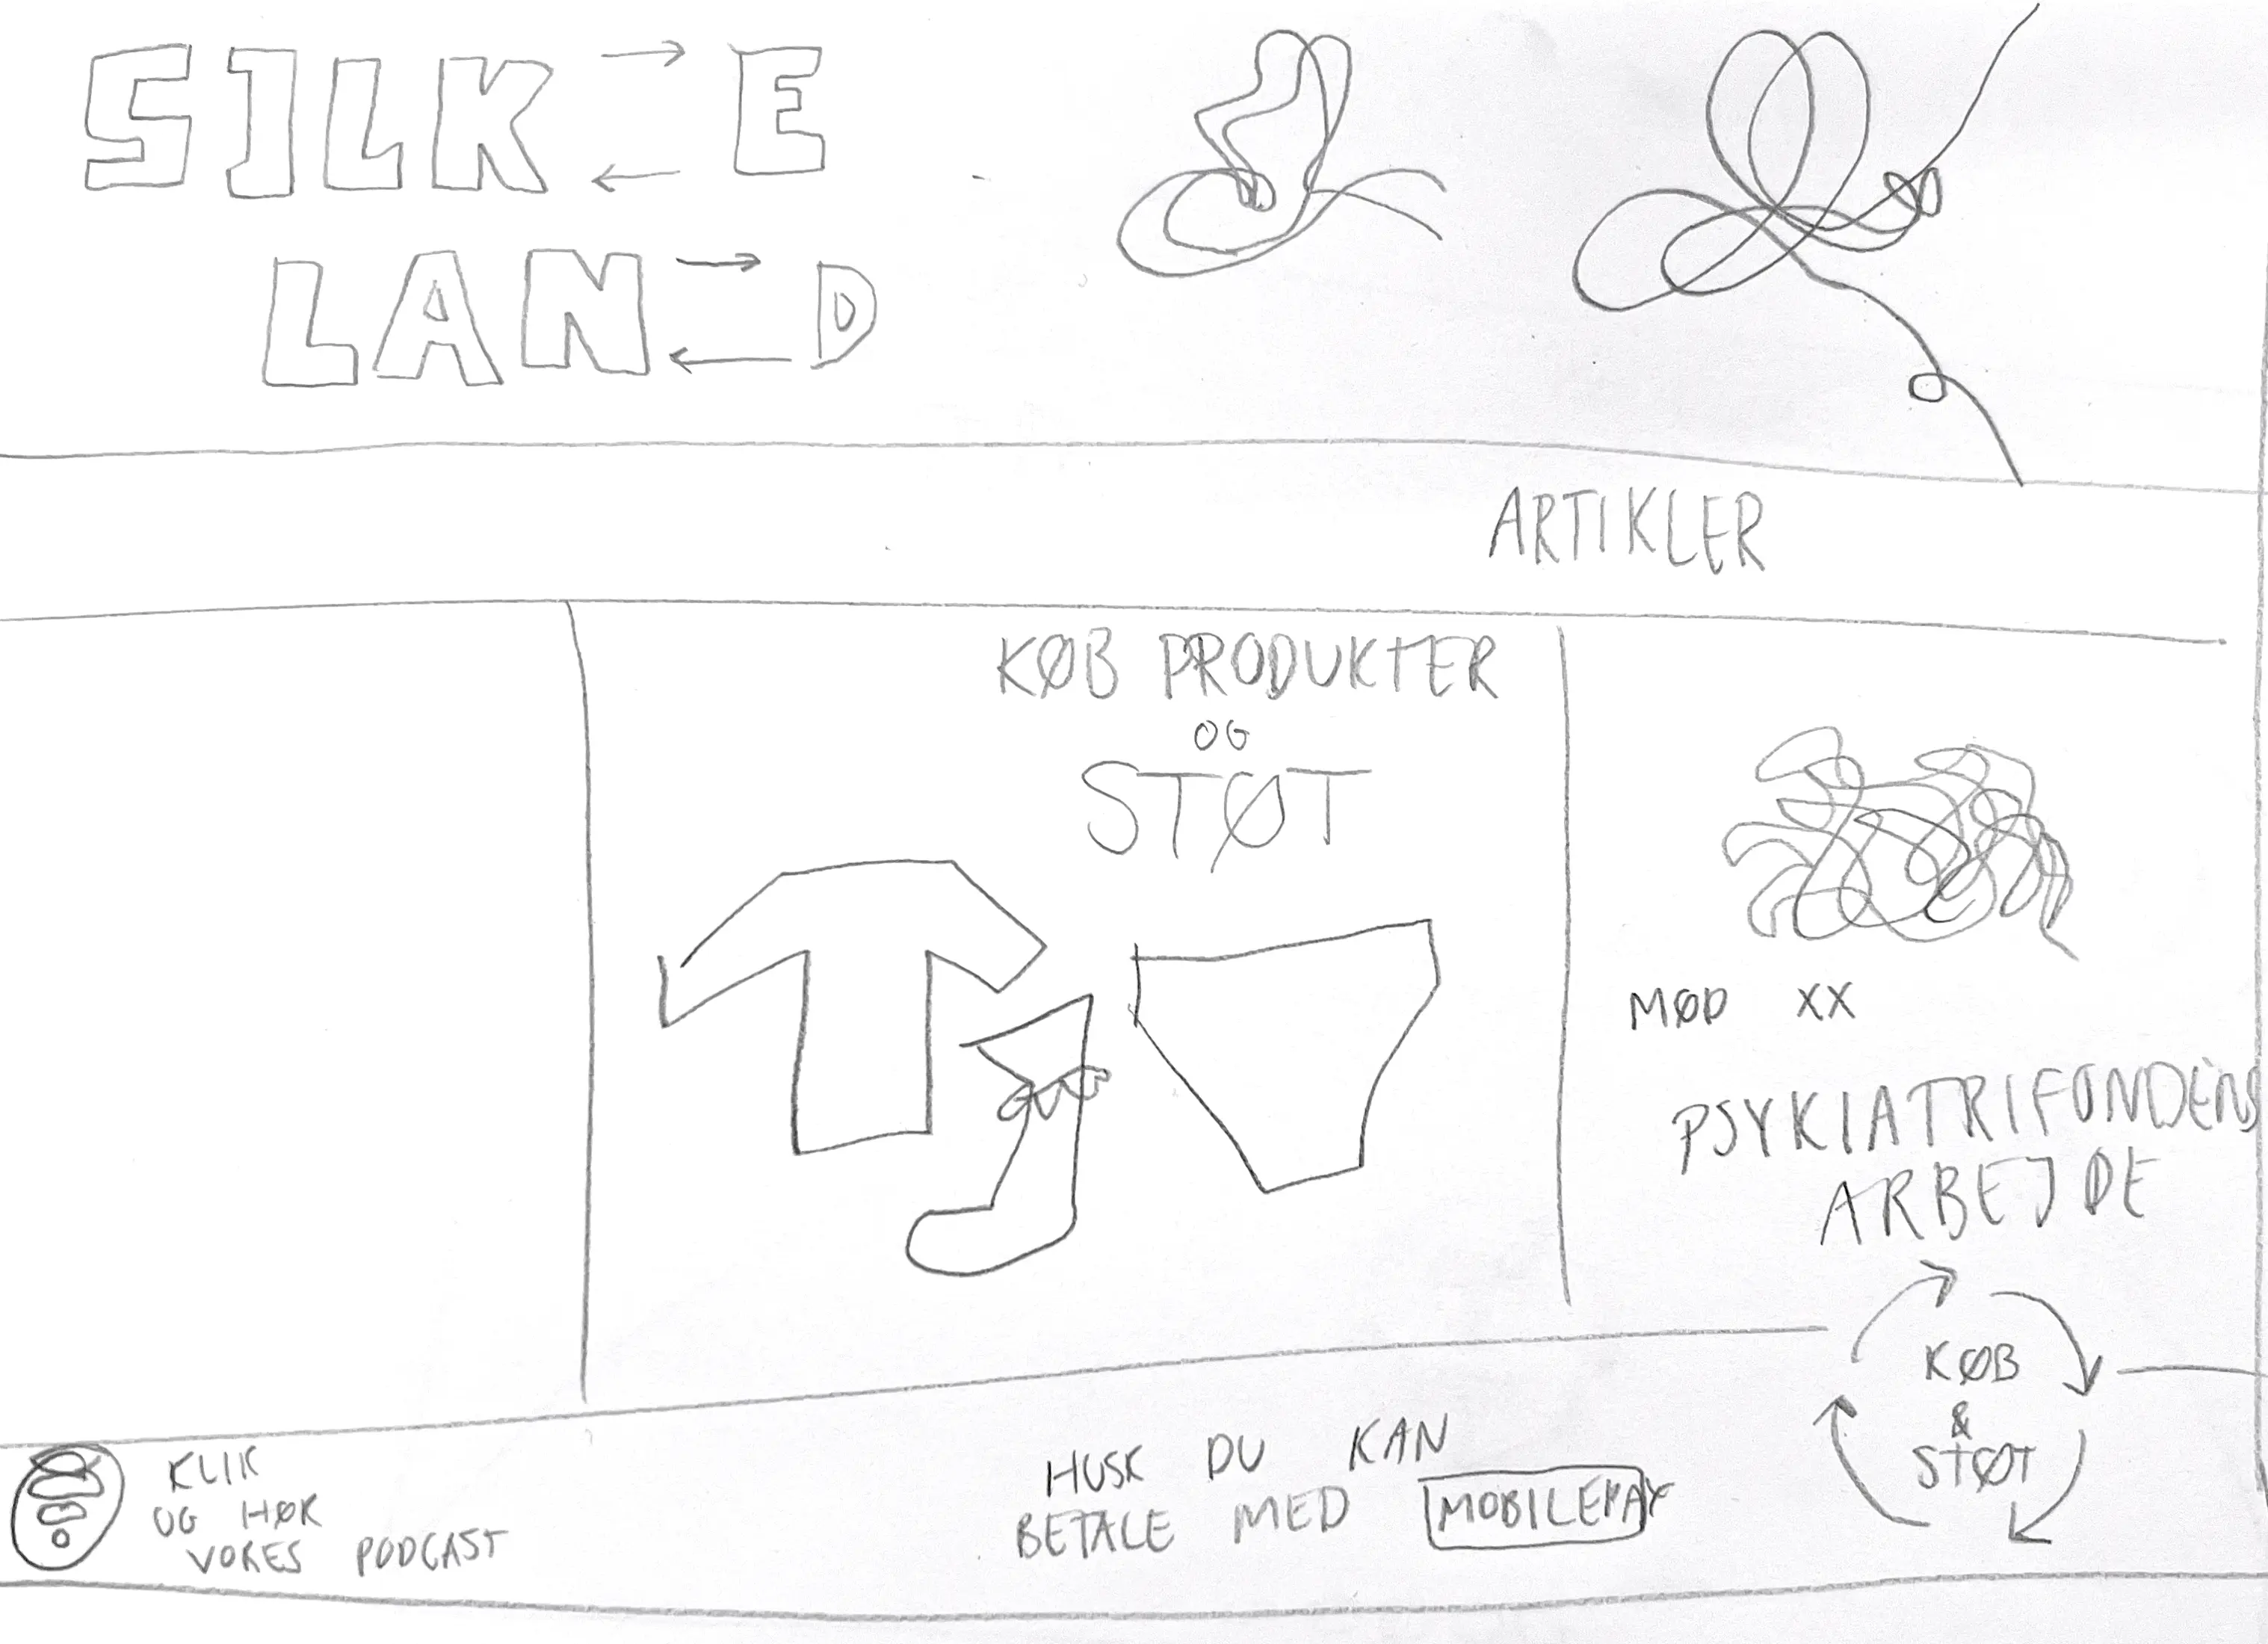 SILK E
LAN D
ARTIKLER
KØB PRODUKTER
OG
STØT
MØD XX
PSYKIATRIFONDENS
ARBEJDE
KØB
&
STØT
KLIK
OG HØR
VORES PODCAST
HUSK DU KAN
BETALE MED MOBILEPAY